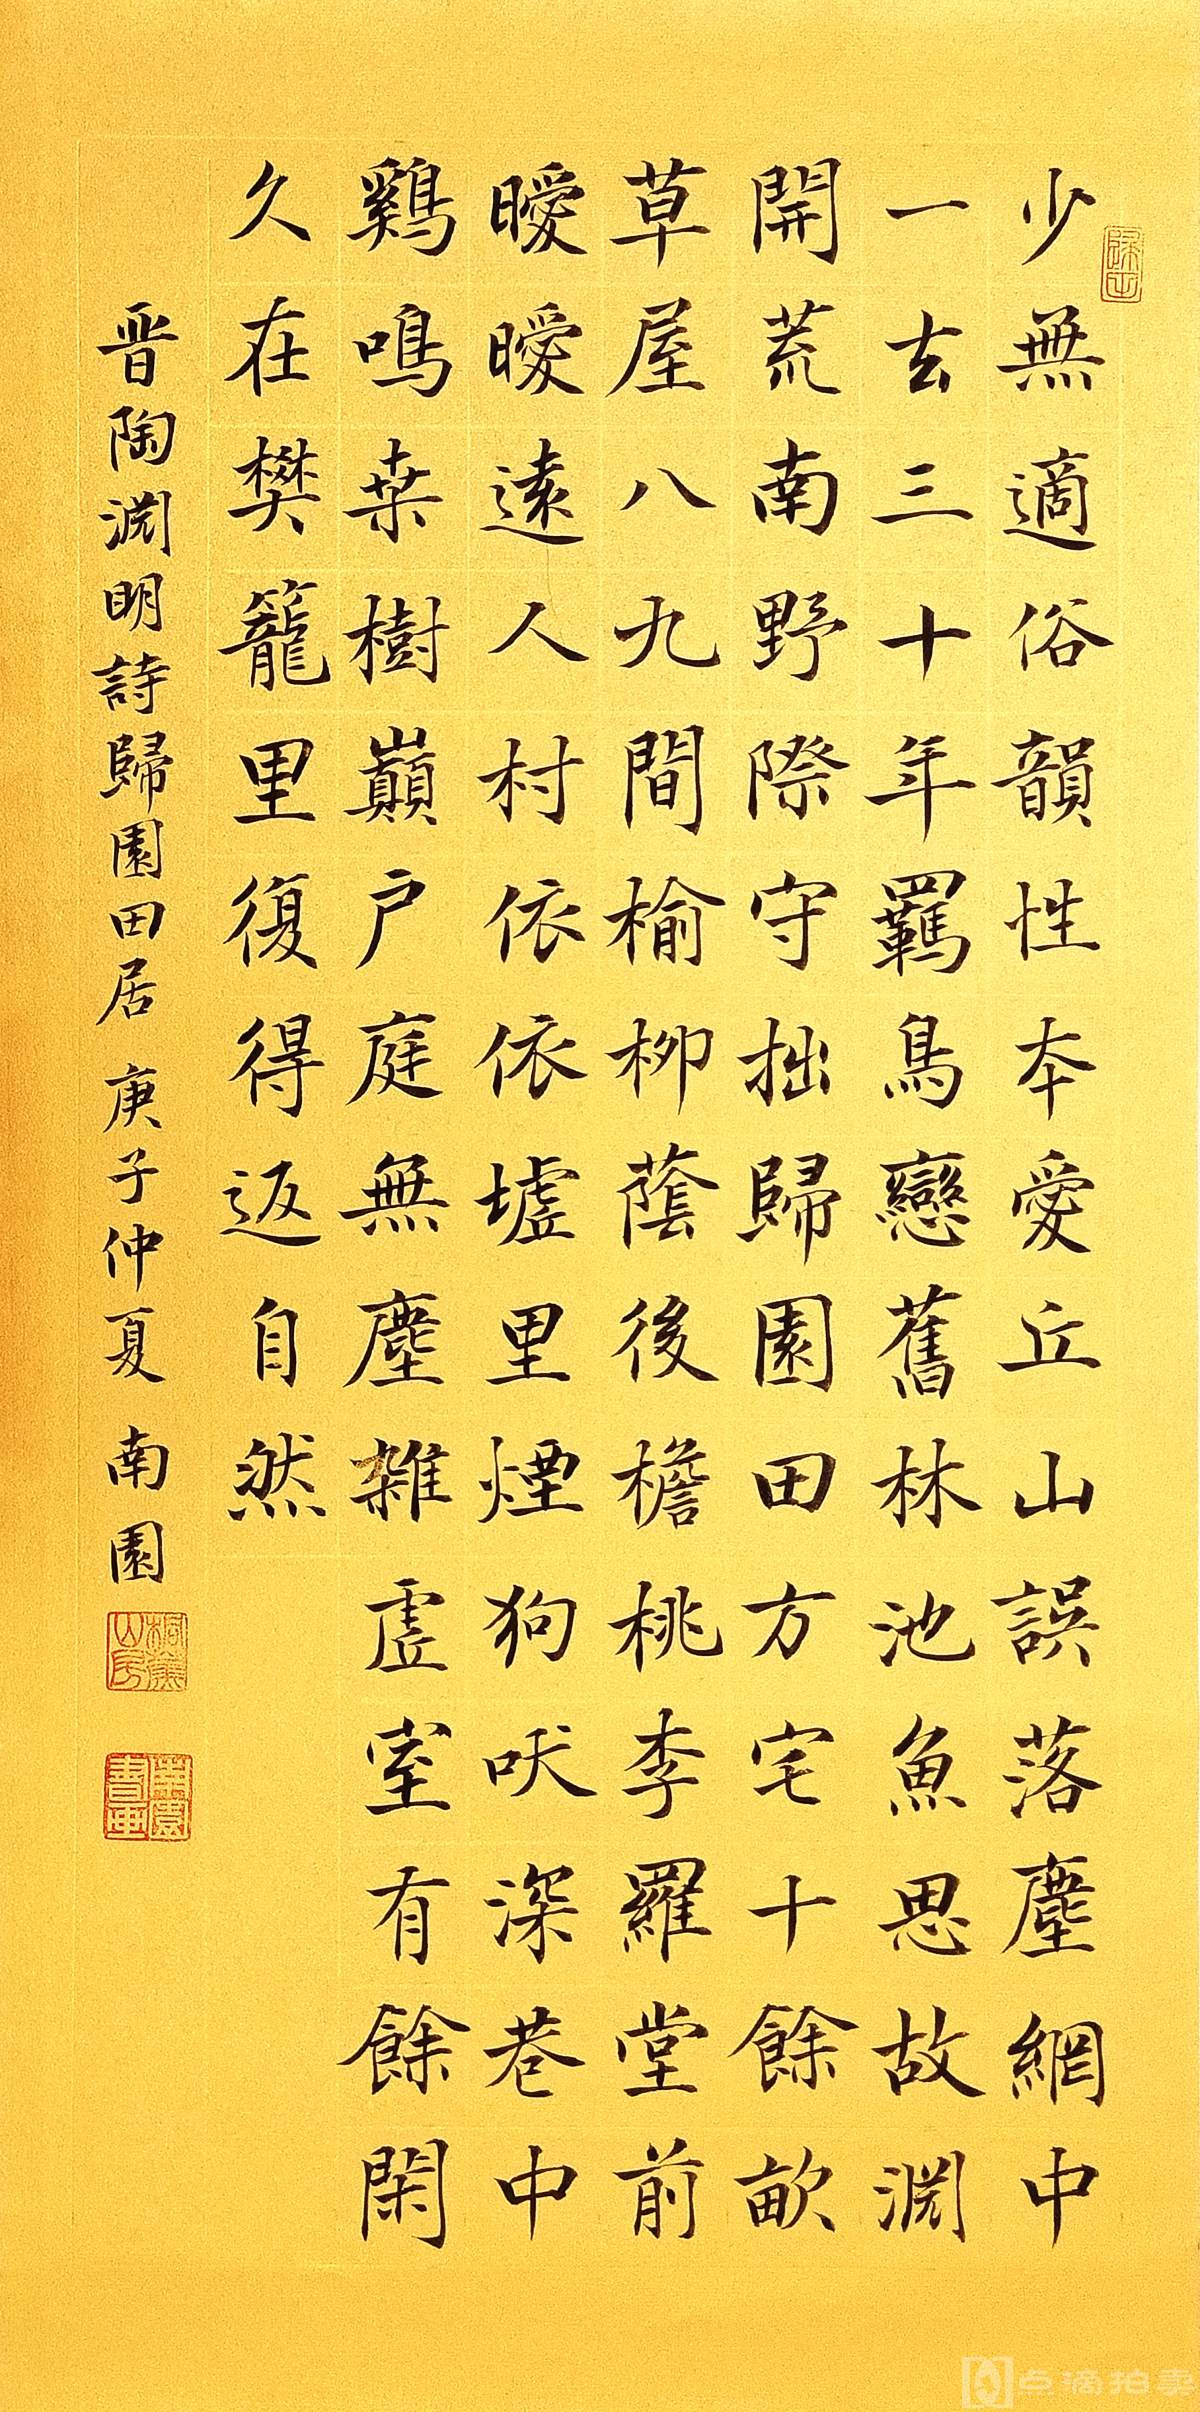 少無適俗韻性本愛丘山誤落塵網中
一去三十年羈鳥戀舊林池魚思故淵
開荒南野際守拙歸園田方宅十餘畝
草屋八九間榆柳蔭後檐桃李羅堂前
曖曖遠人村依依墟里煙狗吠深巷中
鷄鳴桑樹巔戶庭無塵雜虛室有餘閑
久在樊籠里復得返自然
晋陶淵明詩歸園田居 庚子仲夏 南園
点滴拍卖